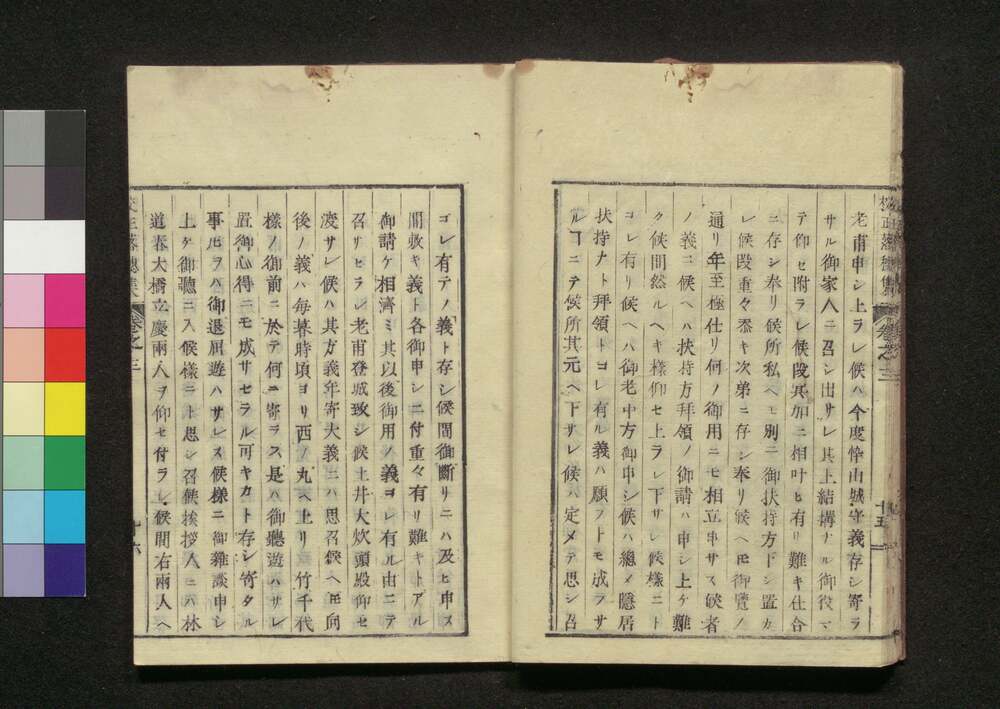 老甫申シ上ラレ候ハ今度悴山城守義存シ寄ラ
サル御家人ニ召シ出サレ其上結構ナル御役マ
テ仰セ附ラレ候段冥加ニ相叶ヒ有リ難キ仕合
ニ存シ奉リ候所私ヘモ別ニ御扶持方下シ置カ
レ候段重々忝キ次第ニ存シ奉リ候ヘ𪜈御覽ノ
通リ年至極仕リ何ノ御用ニモ相立申サス候者
ノ義ニ候ヘハ扶持方拜領ノ御請ハ申シ上ケ難
ク候間然ルヘキ樣仰セ上ラレ下サレ候樣ニト
コレ有リ候ヘハ御老中方御申シ候ハ總メ隱居
扶持ナト拜領トコレ有ル義ハ願フトモ成ラサ
ルヿニテ候所其元ヘ下サレ候ハ定メテ思シ召
十五
コレ有テノ義ト存シ候間御斷リニハ及ヒ申ス
間敷キ義ト各御申シニ付重々有リ難キトアル
御請ケ相濟ミ其以後御用ノ義コレ有ル由ニテ
召サセラレ老甫登城致シ候土井大炊頭殿仰セ
渡サレ候ハ其方義年寄大義ニハ思召候ヘ𪜈向
後ノ義ハ毎暮時頃ヨリ西ノ丸ヘ上リ竹千代
樣ノ御前ニ於テ何ニ寄ラス是ハ御聽遊ハサレ
置御心得ニモ成サセラル可キカト存シ寄タル
事𪜈ヲハ御退屈遊ハサレヌ候樣ニ御雜談申シ
上ケ御聽ニ入候樣ニト思シ召候挨拶人ニハ林
道春大橋立慶兩人ヲ仰セ付ラレ候間右兩人ヘ